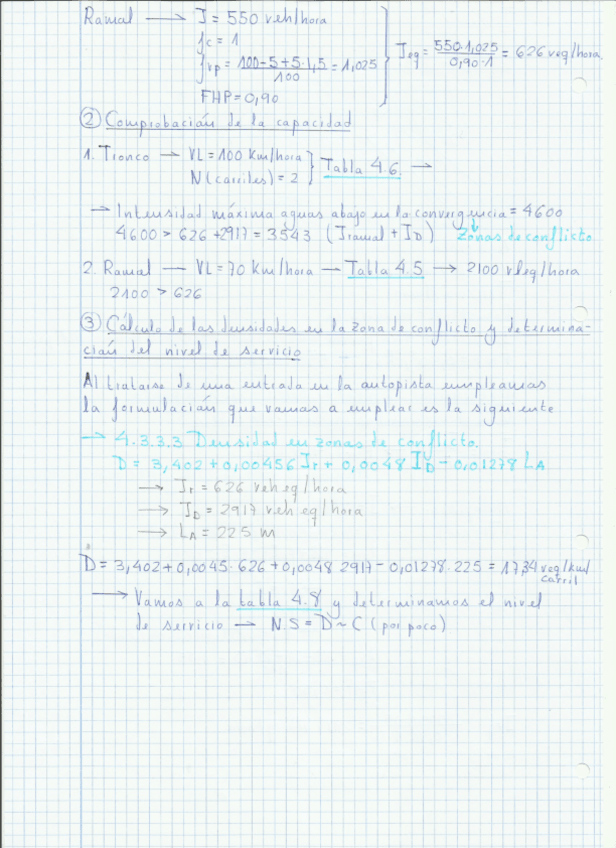 Ramal → I = 550 veh/hora
fc = 1
fvp = 100-5+5·1,5 / 100 = 1,025
FHP = 0,90
Ieq = 550·1,025 / 0,90·1 = 626 veq/hora.
② Comprobación de la capacidad
1. Tronco → VL = 100 Km/hora
N (carriles) = 2
Tabla 4.6. →
→ Intensidad máxima aguas abajo en la convergencia = 4600
4600 > 626 + 2917 = 3543 (Iramal + ID) Zonas de conflicto
2. Ramal — VL = 70 Km/hora → Tabla 4.5 → 2100 vleq/hora
2100 > 626
③ Cálculo de las densidades en la zona de conflicto y determina-
ción del nivel de servicio
Al tratarse de una entrada en la autopista empleamos
la formulación que vamos a emplear es la siguiente
→ 4.3.3.3 Densidad en zonas de conflicto.
D = 3,402 + 0,00456 Ir + 0,0048 ID - 0,01278 LA
→ Ir = 626 veh eq/hora
→ ID = 2917 veh eq/hora
→ LA = 225 m
D = 3,402 + 0,0045·626 + 0,0048 2917 - 0,01278·225 = 17,34 veq/km/
carril
→ Vamos a la tabla 4.8 y determinamos el nivel
de servicio → NS = D ~ C (por poco)